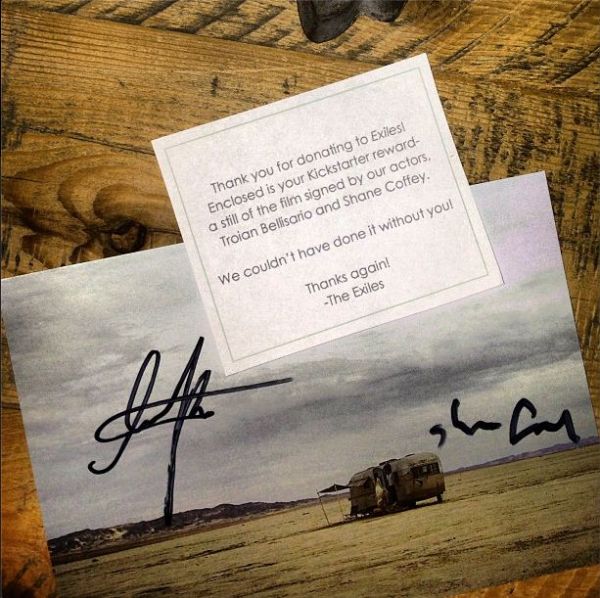 Thank you for donating to Exiles!
Enclosed is your Kickstarter reward-
a still of the film signed by our actors,
Troian Bellisario and Shane Coffey.
We couldn't have done it without you!
Thanks again!
-The Exiles